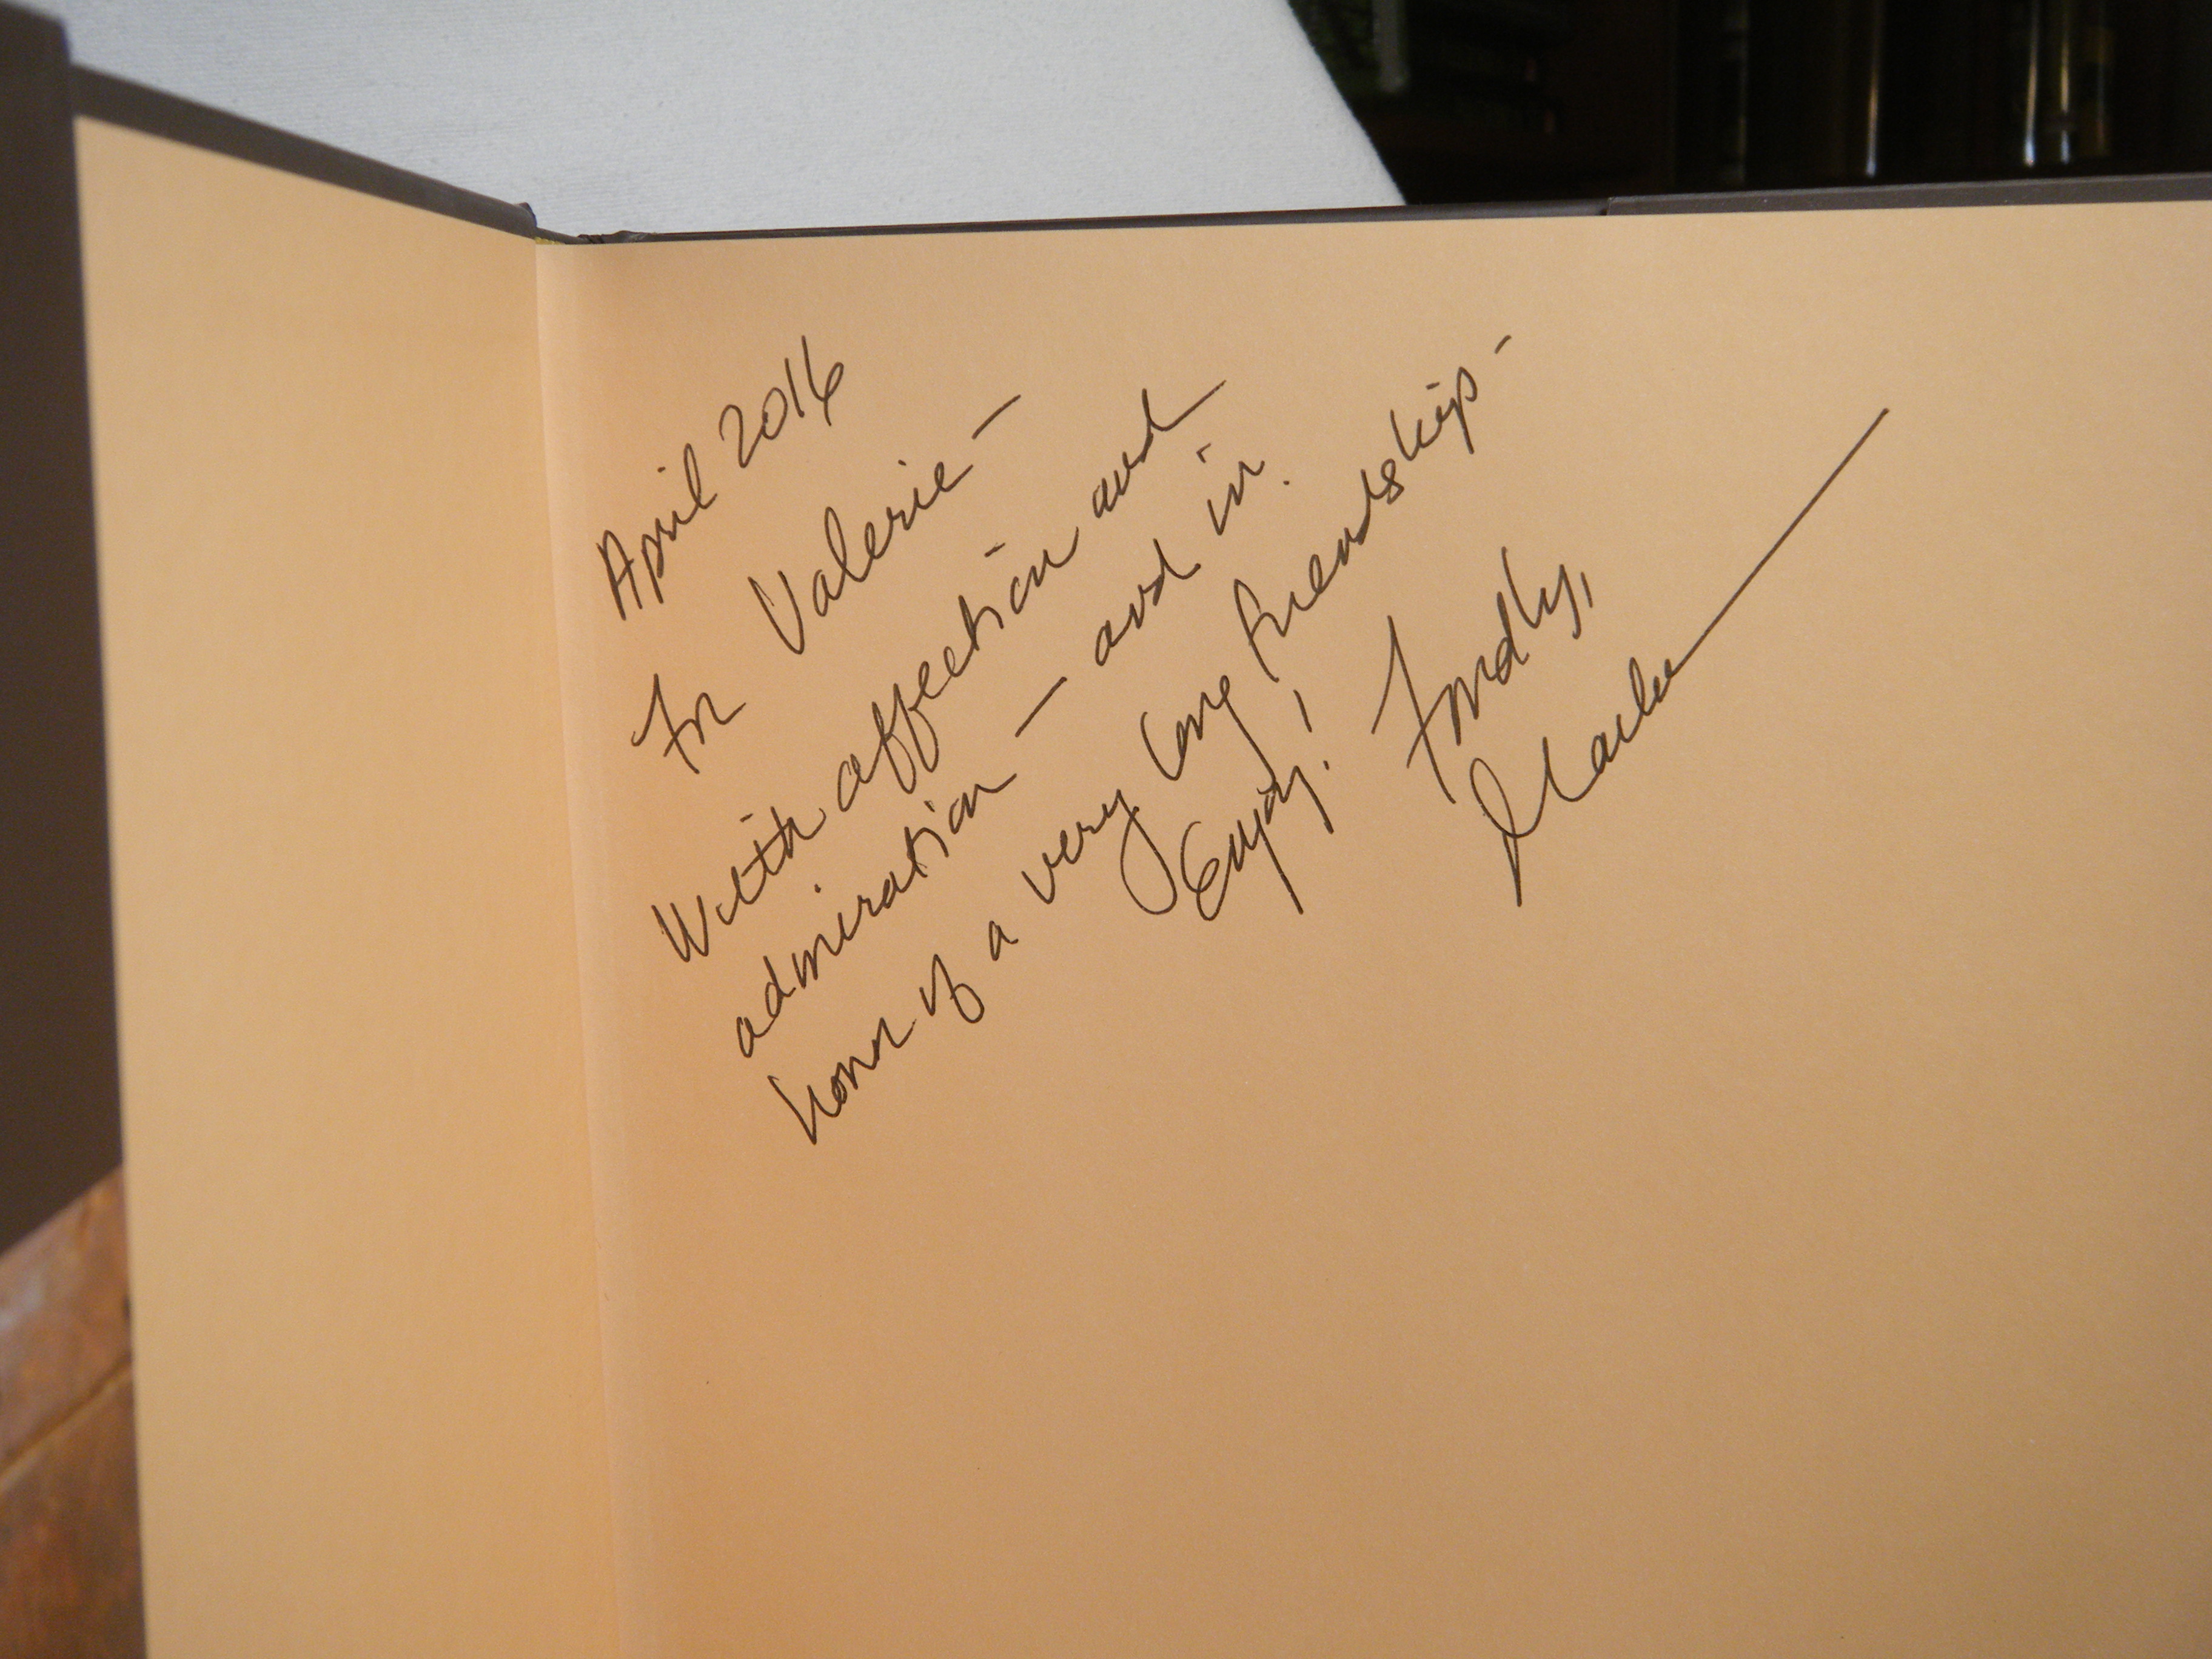 April 2016
For Valerie —
With affection and
admiration — and in
honor of a very long friendship -
Enjoy!
Fondly,